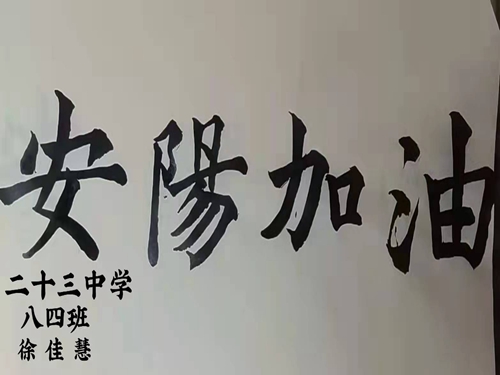 安陽加油
二十三中学
八四班
徐佳慧